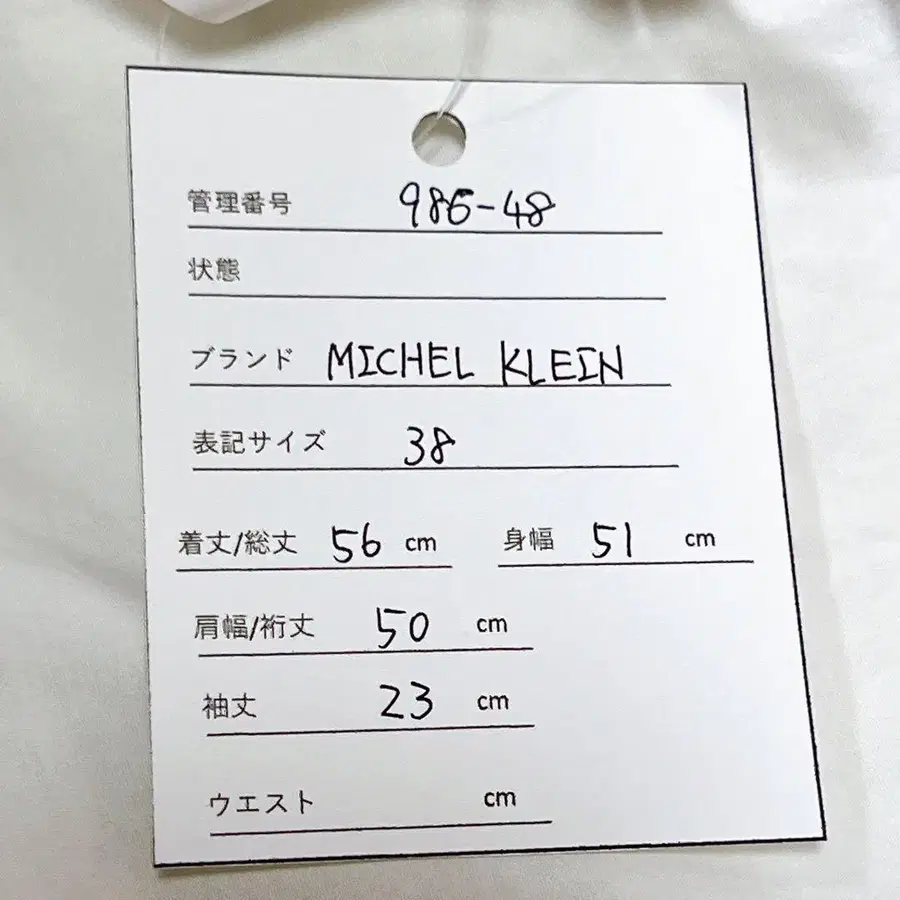 管理番号 986-48
状態
ブランド MICHEL KLEIN
表記サイズ 38
着丈/総丈 56 cm 身幅 51 cm
肩幅/裄丈 50 cm
袖丈 23 cm
ウエスト cm